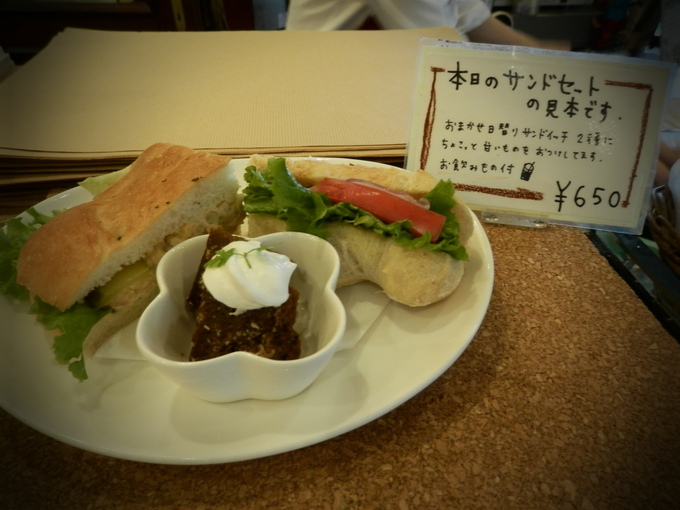 本日のサンドセット
の見本です.
おまかせ日替りサンドイッチ 2種に
ちょこっと甘いものを おつけしてます.
お飲みもの付
￥650